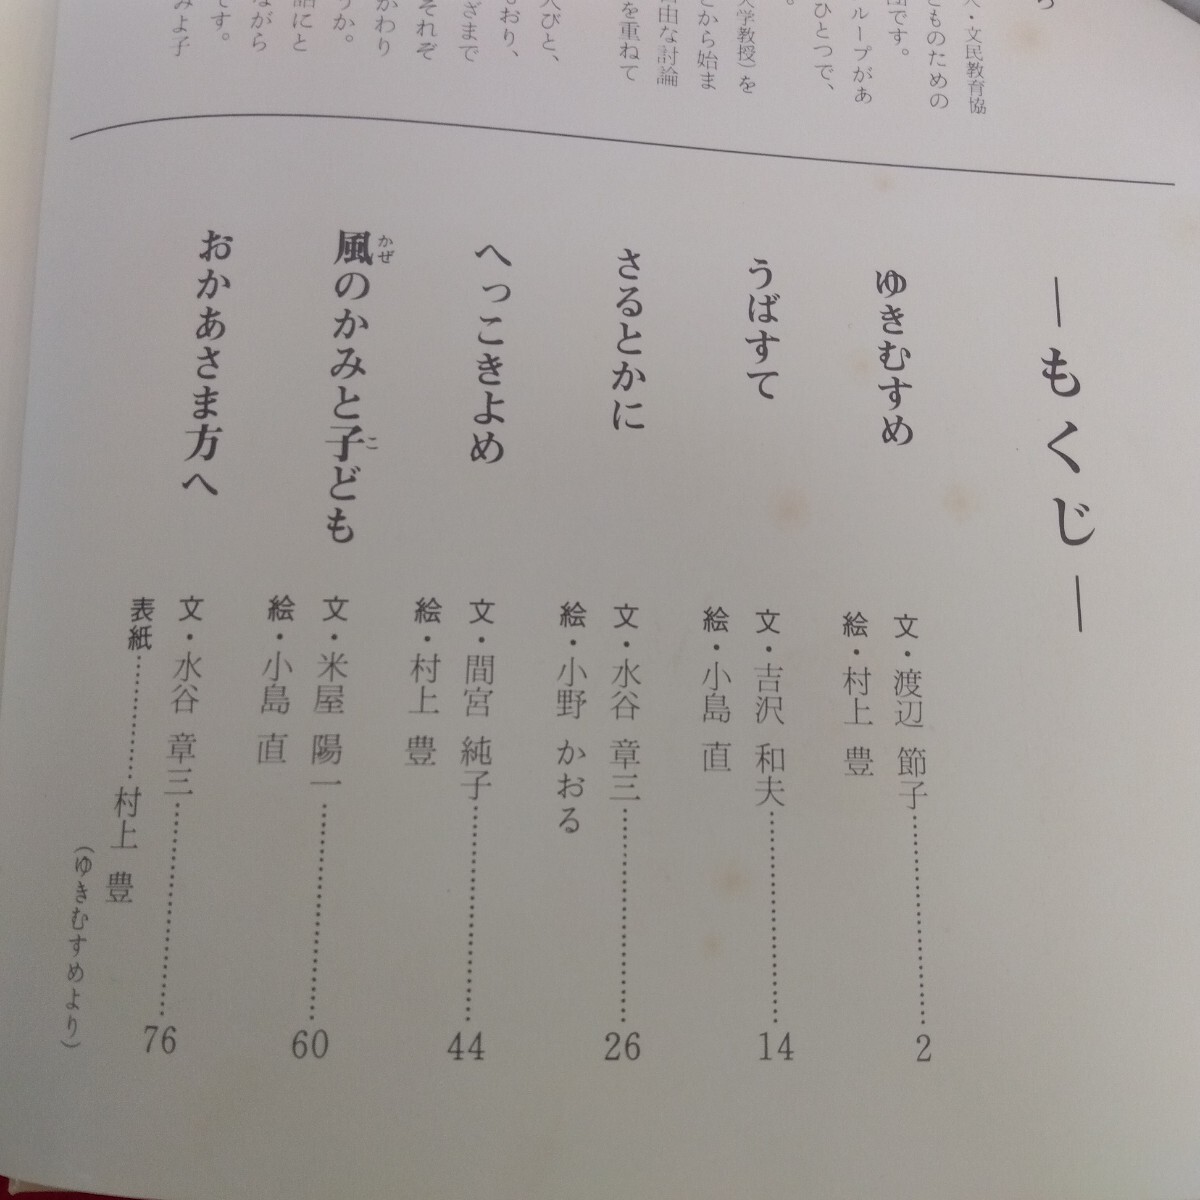 人・文民教育協
どものための
団です。
ループがあ
ひとつで、
大学教授）を
とから始ま
自由な討論
を重ねて
人びと、
おり、
ざまで
それぞ
かわり
うか。
話にと
ながら
です。
みよ子
―もくじ―
ゆきむすめ
文・渡辺 節子……………2
絵・村上 豊
うばすて
文・吉沢 和夫……………14
絵・小島 直
さるとかに
文・水谷 章三……………26
絵・小野 かおる
へっこきよめ
文・間宮 純子……………44
絵・村上 豊
風のかみと子ども
かぜ こ
文・米屋 陽一……………60
絵・小島 直
おかあさま方へ
文・水谷 章三……………76
表紙………村上 豊
（ゆきむすめより）